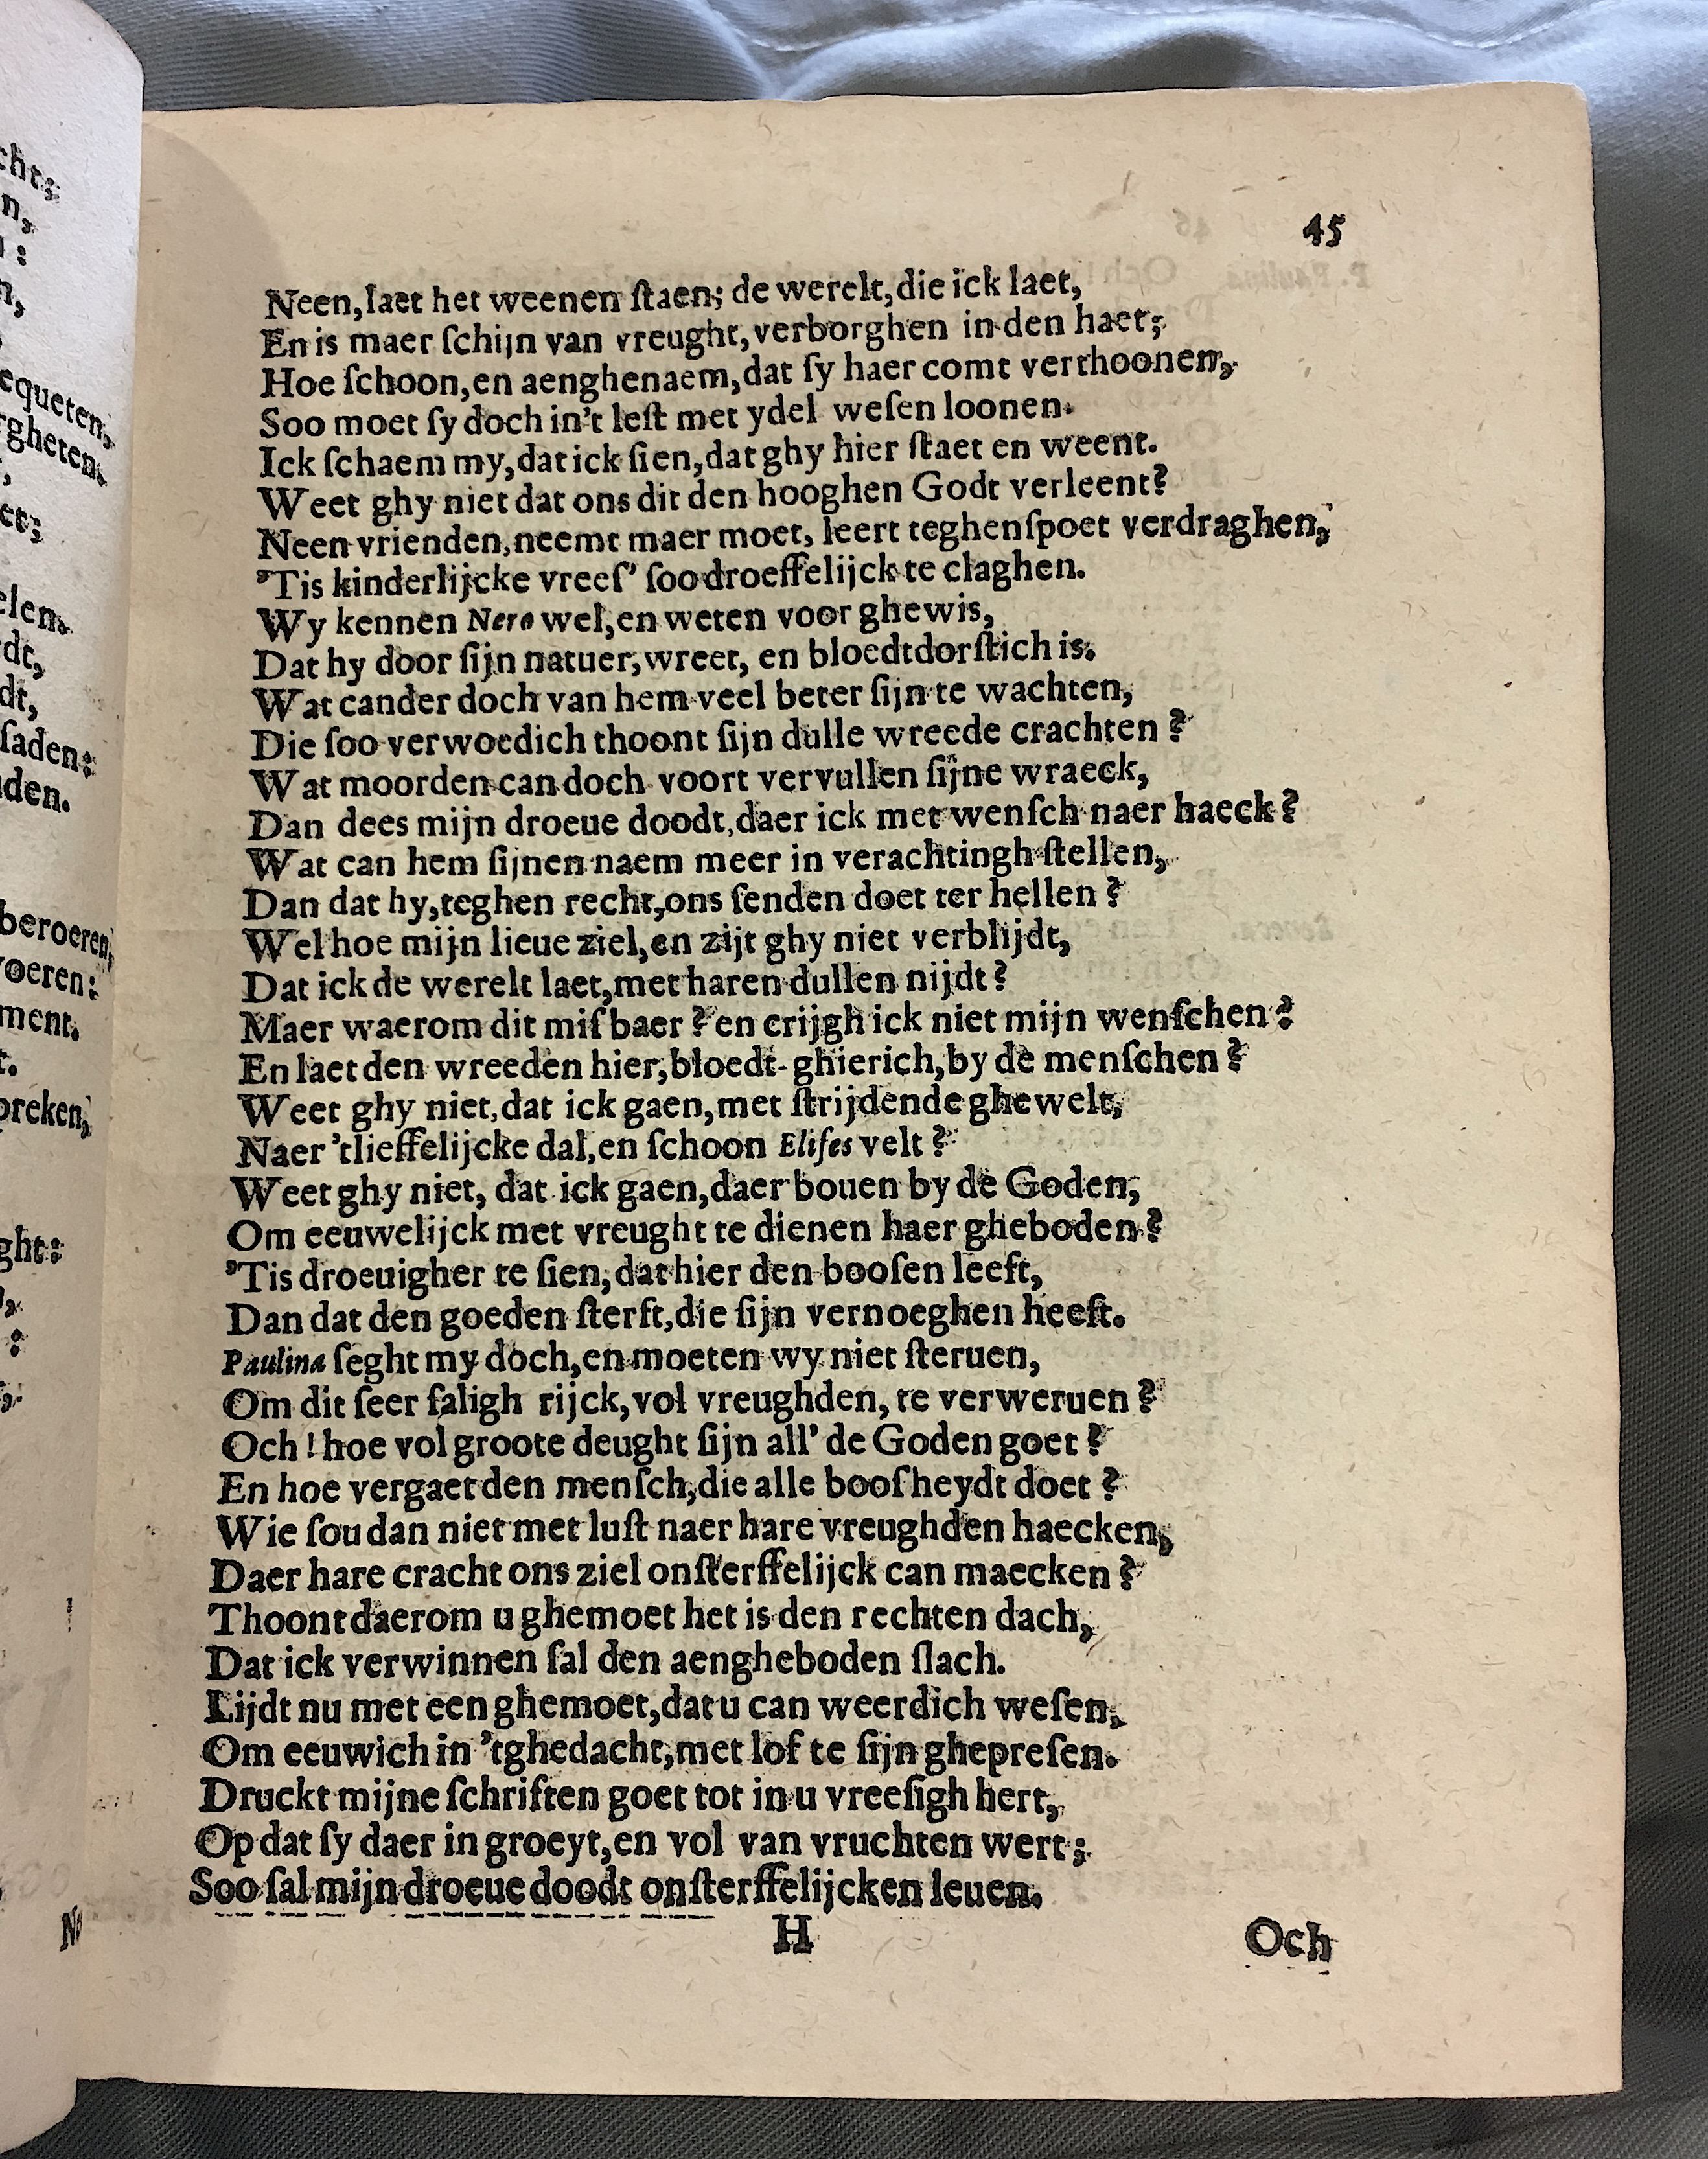 45
Neen, laet het weenen ſtaen; de werelt, die ick laet,
En is maer ſchijn van vreught, verborghen in den haet;
Hoe ſchoon, en aenghenaem, dat ſy haer comt verthoonen,
Soo moet ſy doch in't leſt met ydel weſen loonen.
Ick ſchaem my, dat ick ſien, dat ghy hier ſtaet en weent.
Weet ghy niet dat ons dit den hooghen Godt verleent?
Neen vrienden, neemt maer moet, leert teghenſpoet verdraghen,
'Tis kinderlijcke vreeſ' ſoo droeffelijck te claghen.
Wy kennen Nero wel, en weten voor ghewis,
Dat hy door ſijn natuer, wreet, en bloedtdorſtich is.
Wat cander doch van hem veel beter ſijn te wachten,
Die ſoo verwoedich thoont ſijn dulle wreede crachten?
Wat moorden can doch voort vervullen ſijne wraeck,
Dan dees mijn droeue doodt, daer ick met wenſch naer haeck?
Wat can hem ſijnen naem meer in verachtingh ſtellen,
Dan dat hy, teghen recht, ons ſenden doet ter hellen?
Wel hoe mijn lieue ziel, en zijt ghy niet verblijdt,
Dat ick de werelt laet, met haren dullen nijdt?
Maer waerom dit miſbaer? en crijgh ick niet mijn wenſchen?
En laet den wreeden hier, bloedt-ghierich, by de menſchen?
Weet ghy niet, dat ick gaen, met ſtrijdende ghewelt,
Naer 'tlieffelijcke dal, en ſchoon Eliſes velt?
Weet ghy niet, dat ick gaen, daer bouen by de Goden,
Om eeuwelijck met vreught te dienen haer gheboden?
'Tis droeuigher te ſien, dat hier den booſen leeft,
Dan dat den goeden ſterft, die ſijn vernoeghen heeft.
Paulina ſeght my doch, en moeten wy niet ſteruen,
Om dit ſeer ſaligh rijck, vol vreughden, te verweruen?
Och! hoe vol groote deught ſijn all' de Goden goet?
En hoe vergaet den menſch, die alle booſheydt doet?
Wie ſou dan niet met luſt naer hare vreughden haecken,
Daer hare cracht ons ziel onſterffelijck can maecken?
Thoont daerom u ghemoet het is den rechten dach,
Dat ick verwinnen ſal den aengheboden ſlach.
Lijdt nu met een ghemoet, dat u can weerdich weſen,
Om eeuwich in 'tghedacht, met lof te ſijn ghepreſen.
Druckt mijne ſchriften goet tot in u vreeſigh hert,
Op dat ſy daer in groeyt, en vol van vruchten wert;
Soo ſal mijn droeue doodt onſterffelijcken leuen.
H Och